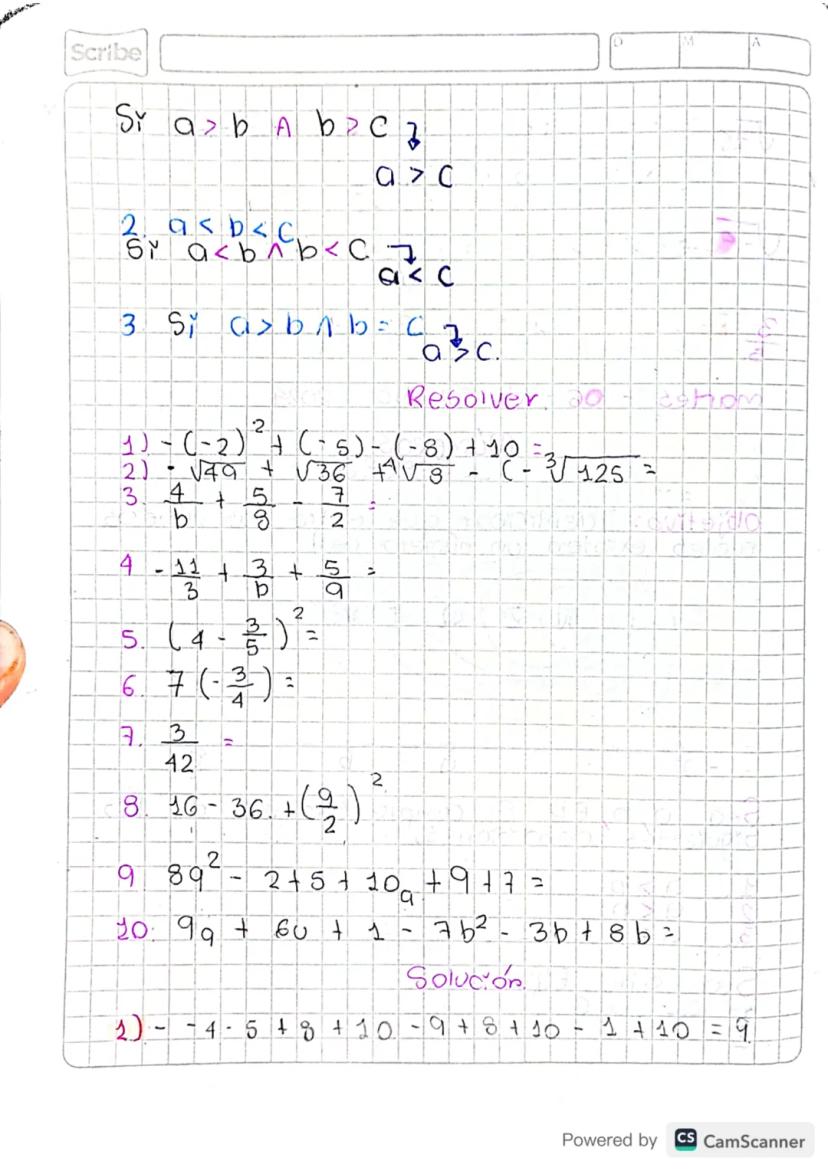 Scribe
D M A
Si a > b ∧ b > c
a > c
2. a < b < c
Si a < b ∧ b < c
a < c
3 Si a > b ∧ b = c
a > c.
Resolver.
1) -(-2)² + (-5) - (-8) + 10 =
2) - √49 + √36 + ⁴√8 - (-³√125 =
3. 4/b + 5/8 - 7/2 =
4 - 11/3 + 3/b + 5/9 =
5. (4 - 3/5)² =
6. 7 (-3/4) =
7. 3/42 =
8. 16 - 36. + (9/2)²
9 8a² - 2 + 5 + 10a + 9 + 7 =
10. 9a + 6u + 1 - 7b² - 3b + 8b =
Solución.
1) - -4 - 5 + 8 + 10 - 9 + 8 + 10 - 1 + 10 = 9.
Powered by CS CamScanner